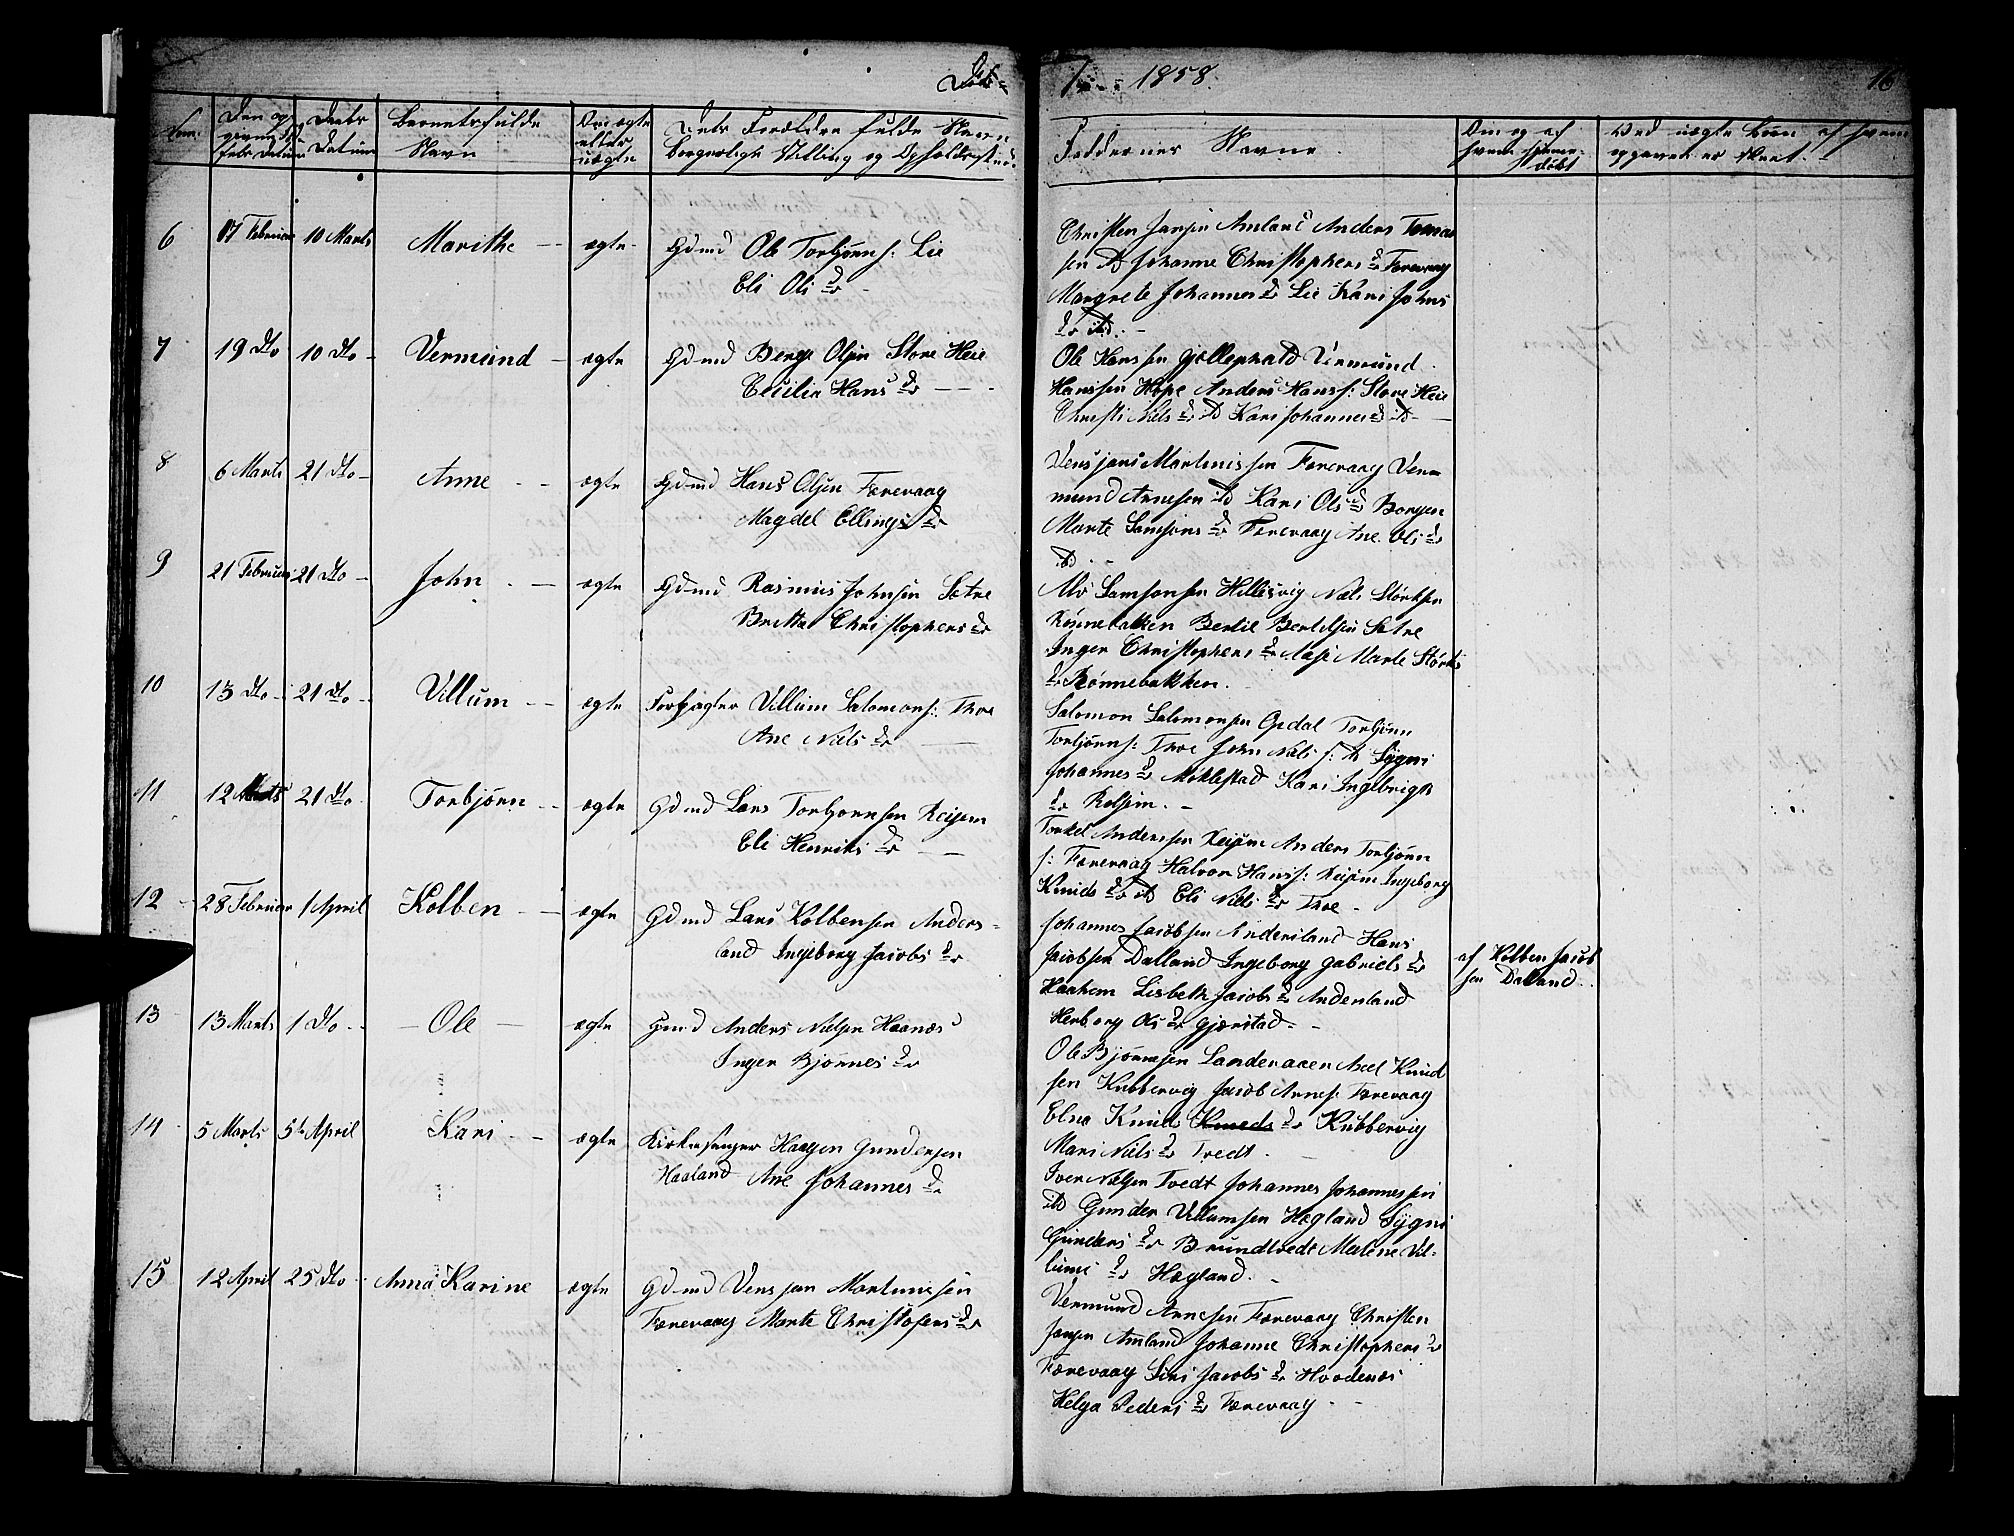 Døb-
1858.
16
Den op-
givne Fød-
sels Datum
Daabs
Datum
Barnets fulde
Navn
Om ægte
eller
uægte
Dets Forældres fulde Navn
borgerlige Stilling og Opholdssted
Faddernes Navne.
Om og af
hvem hjemme-
døbt
Ved uægte Børn af hvem
opgaven er skeet.
6
17 Februar 10 Marts
Marithe
ægte
Gdmd Ole Torbjørns: Lie
Eli Ols Dr
Christen Jansen Amland Anders Tomas
sen ibd Johanne Christophers Dr Færevaag
Margrete Johannes Dr Lie Kari Johns
Dr ibd.
7
19 Dto 10 Dto
Vermund
ægte
Gdmd Berge Olsen Store Heie
Cecilie Hans Dr
Ole Hanssen Vermund
Hanssen Hope Anders Hanss: Store Heie
Christi Niels Dr ibd Kari Johannes Dr ibd
8
6 Marts 21 Dto
Anne
ægte
Gdmd Hans Olsen Færevaag
Magdel Ellings Dr
Vensjans Martinissen Færevaag Ver-
mund Arnesen ibd Kari Ols Dr Borgen
Marte Samsons Dr Færevaag Ane Ols Dr
ibd
9
21 Februar 21 Dto
John
ægte
Gdmd Rasmus Johnsen Sætre
Britta Christophers Dr
Samsonsen Hillesvig Nils Størksen
Rønnebakken Bertil Bertelsen Sætre
Inger Christophers Dr Marte Størks
Dr Rønnebakken.
10
13 Dto 21 Dto
Villum
ægte
Forpagter Villum Salomons: Thoe
Ane Niels Dr
Salomon Salomonsen Opdal Torbjørn
Torbjørns: Thoe John Niels s: ibd Sygni
Johannes Dr Møklestad Kari Ingebrigts
Dr
11
12 Marts 21 Dto
Torbjørn
ægte
Gdmd Lars Torbjørnsen Reisem
Eli Henriks Dr
Torkel Anderssen Reisem Anders Torbjørn
s: Færevaag Halvor Hanss: Reisem Ingeborg
Knuds Dr ibd Eli Niels Dr Thoe
12
28 Februar 1 April
Kolben
ægte
Gdmd Lars Kolbensen Anders-
land Ingeborg Jacobs Dr
Johannes Jacobsen Andersland Hans
Jacobsen Dalland Ingeborg Gabriels Dr
Haahem Lisbeth Jacobs Dr Andersland
Herborg Ols Dr Gjærstad
af Kolben Jacob
sen Dalland
13
13 Marts 1 Dto
Ole
ægte
Gmd Anders Nielsen Haanæs
Inger Bjørnes Dr
Ole Bjørnesen Landeraaen Neel Knud
sen Kubbervig Jacob Arnes: Færevaag
Elne Knuds Knuds Dr Kubbervig
Mari Niels Dr Tvedt
14
5 Marts 5t April
Kari
ægte
Kirkesanger Haagen Gundersen
Haaland Ane Johannes Dr
Iver Nielsen Tvedt Johannes Johannessen
ibd Gunder Villumsen Høgland Sygni
Gunders Dr Brundtvedt Malene Vil-
lums Dr Høgland.
15
12 April 25 Dto
Anna Karine
ægte
Gdmd Vensjan Martinissen
Færevaag Marte Christofers Dr
Vermund Arnesen Færevaag Christen
Jansen Amland Johanne Christophers Dr
Færevaag Siri Jacobs Dr Hovdenæs
Helga Peders Dr Færevaag